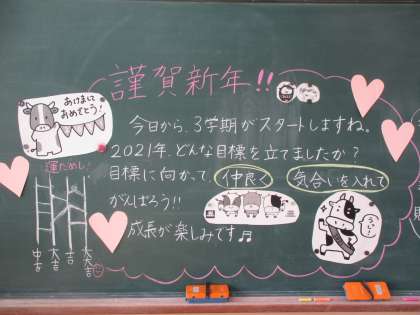 謹賀新年!!
あけまして
おめでとう!
今日から、3学期がスタートしますね。
2021年、どんな目標を立てましたか?
目標に向かって 仲良く 気合いを入れて
がんばろう!!
成長が楽しみです♬
運だめし!
中吉 大吉 吉 大吉
うぃ〜!